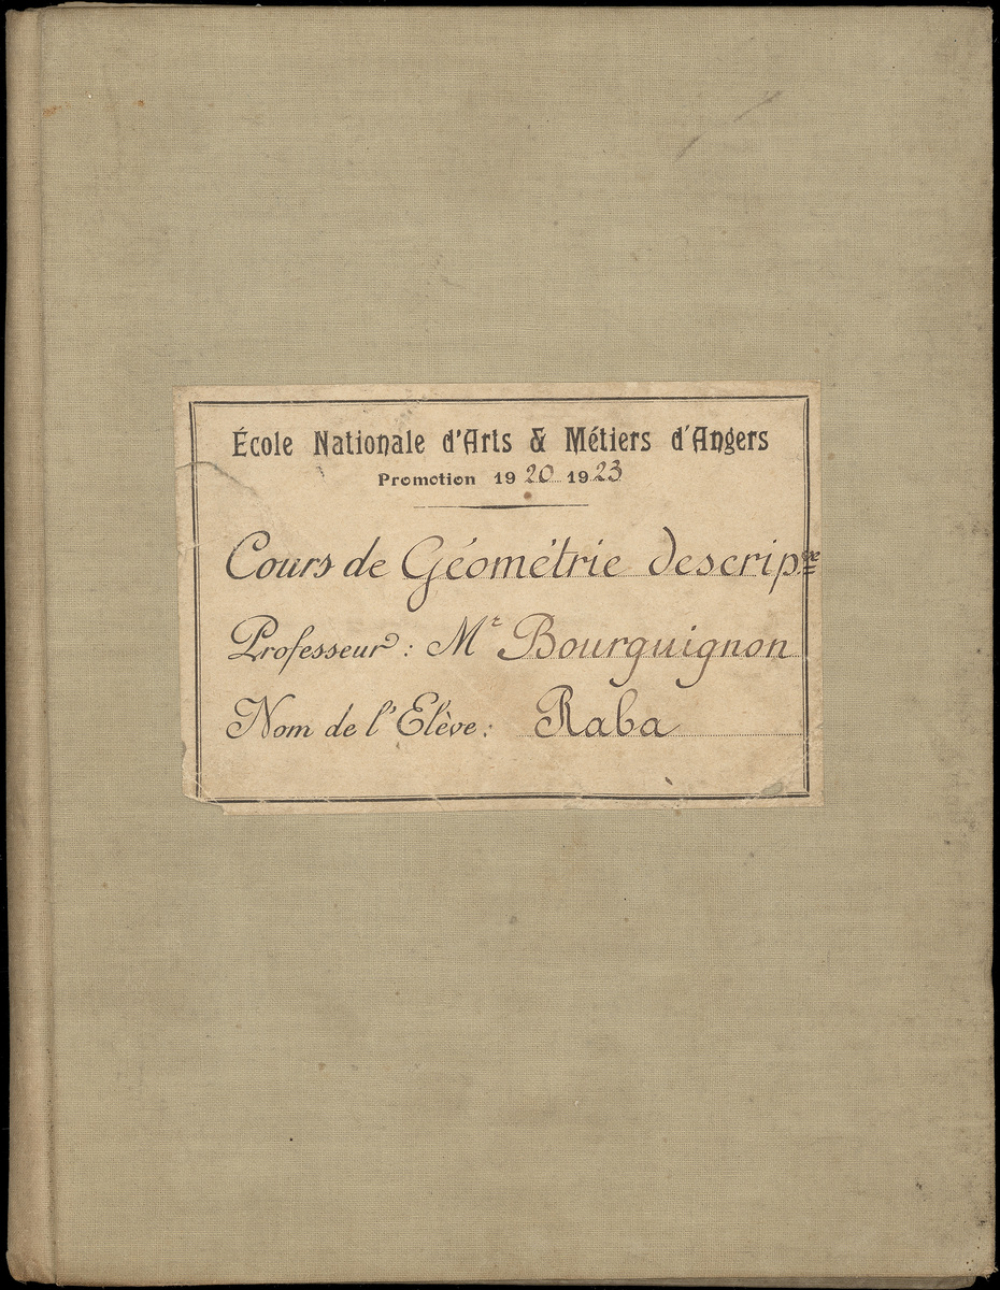 École Nationale d'Arts & Métiers d'Angers
Promotion 1920 1923
Cours de Géométrie descrip.ve
Professeur : Mr Bourguignon
Nom de l'Elève : Raba